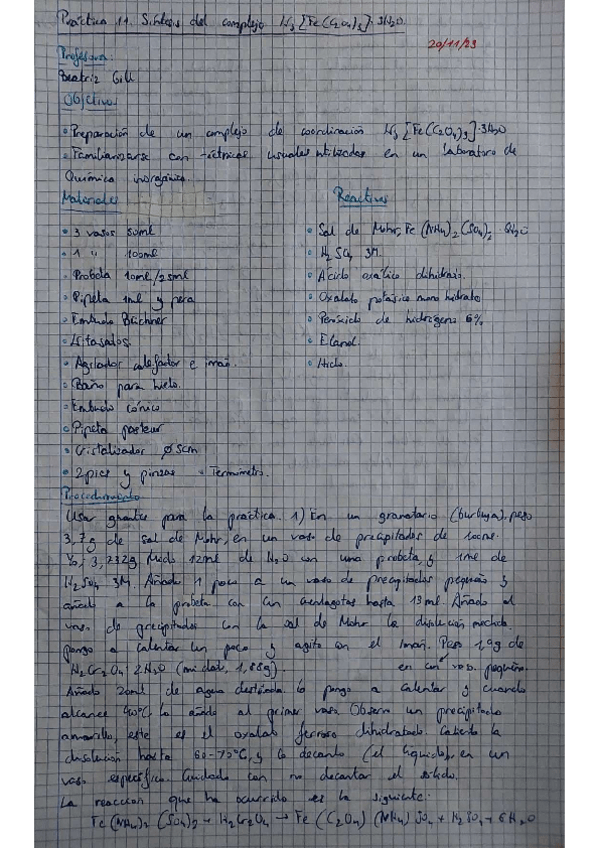 Práctica 11. Síntesis del complejo K3[Fe(C2O4)3]·3H2O.
20/11/23
Profesora:
Beatriz Gill
Objetivos
• Preparación de un complejo de coordinación K3[Fe(C2O4)3]·3H2O
• Familiarizarse con técnicas usuales utilizadas en un laboratorio de
Química inorgánica.
Materiales
• 3 vasos 50ml
• 1 " 100ml
• Probeta 10ml/25ml
• Pipeta 1ml y pera
• Embudo Büchner
• Kitasatos
• Agitador calefactor e imán.
• Baño para hielo.
• Embudo cónico
• Pipeta pasteur
• Cristalizador Ø5cm
• 2 pies y pinzas • Termómetro.
Reactivos
• Sal de Mohr, Fe(NH4)2(SO4)2·6H2O
• H2SO4 3M.
• Ácido oxálico dihidrato.
• Oxalato potásico monohidrato
• Peróxido de hidrógeno 6%
• Etanol.
• Hielo.
Procedimiento
Usar guantes para la práctica. 1) En un granatario (burbuja), peso
3,7g de sal de Mohr, en un vaso de precipitados de 100ml.
3,7232g Mido 12ml de H2O con una probeta, y 1ml de
H2SO4 3M. Añado 1 poco a un vaso de precipitados pequeño y
añado a la probeta con un cuentagotas hasta 13ml. Añado al
vaso de precipitados con la sal de Mohr la disolución medida.
pongo a calentar un poco y agito con el imán. Peso 1,9g de
H2C2O4·2H2O (mi dato, 1,88g). en un vaso pequeño.
Añado 20ml de agua destilada lo pongo a calentar y cuando
alcance 40ºC, lo añado al primer vaso. Observo un precipitado
amarillo, este es el oxalato ferroso dihidratado. Caliento la
disolución hasta 60-75ºC, y lo decanto (el líquido), en un
vaso específico. Cuidado con no decantar el sólido.
La reacción que ha ocurrido es la siguiente:
Fe(NH4)2(SO4)2 + H2C2O4 → Fe(C2O4)(NH4)SO4 + H2SO4 + 6H2O